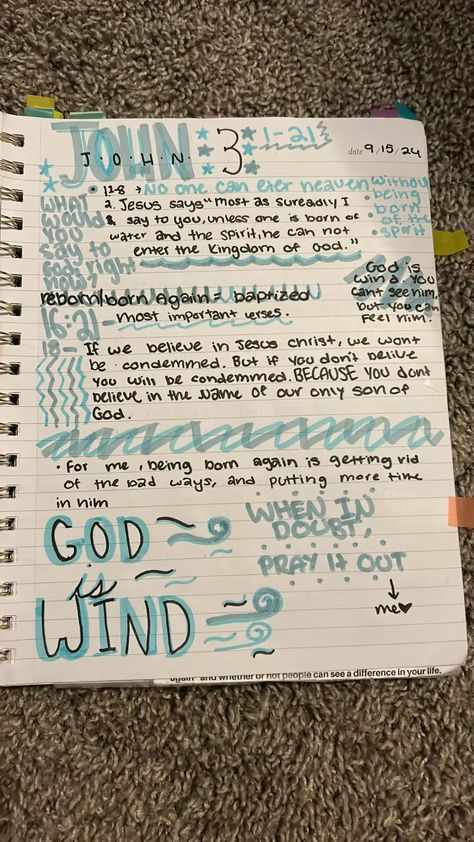 JOHN 3 1-21
J.O.H.N.
date 9/15/24
• 12-8 → No one can eter heaven without being born of the spirit
WHAT would you say to God right now?
2. Jesus says "most as sureadly I
& say to you, unless one is born of
water and the spirit, he can not
enter the kingdom of God."
God is
wind. You
cant see him,
but you can
Feel him.
reborn/born Again = baptized
16:21 - most important verses.
18 - If we believe in Jesus christ, we wont
be condemmed. But if you don't belive
you will be condemmed. BECAUSE you dont
believe in the name of our only son of
God.
• For me, being born again is getting rid
of the bad ways, and putting more time
in him
GOD
is
WIND
WHEN IN
DOUBT,
PRAY It OUT
↓
me♥
again" and whether or not people can see a difference in your life.